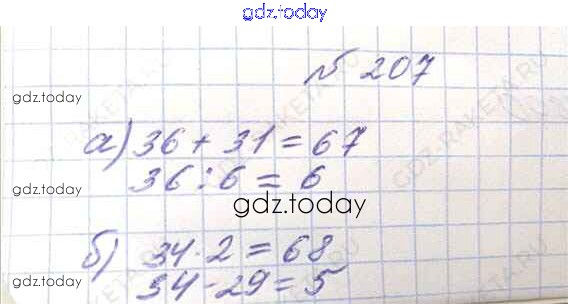 gdz.today
№ 207
gdz.today
а) 36 + 31 = 67
36 : 6 = 6
gdz.today
gdz.today
б) 34 · 2 = 68
34 - 29 = 5
gdz.today
GDZ-RAKETA.RU